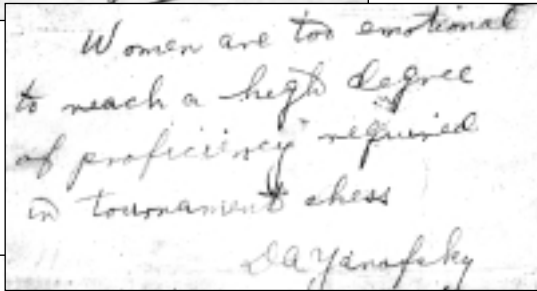 Women are too emotional
to reach a high degree
of proficiency required
in tournament chess
DAYanofsky